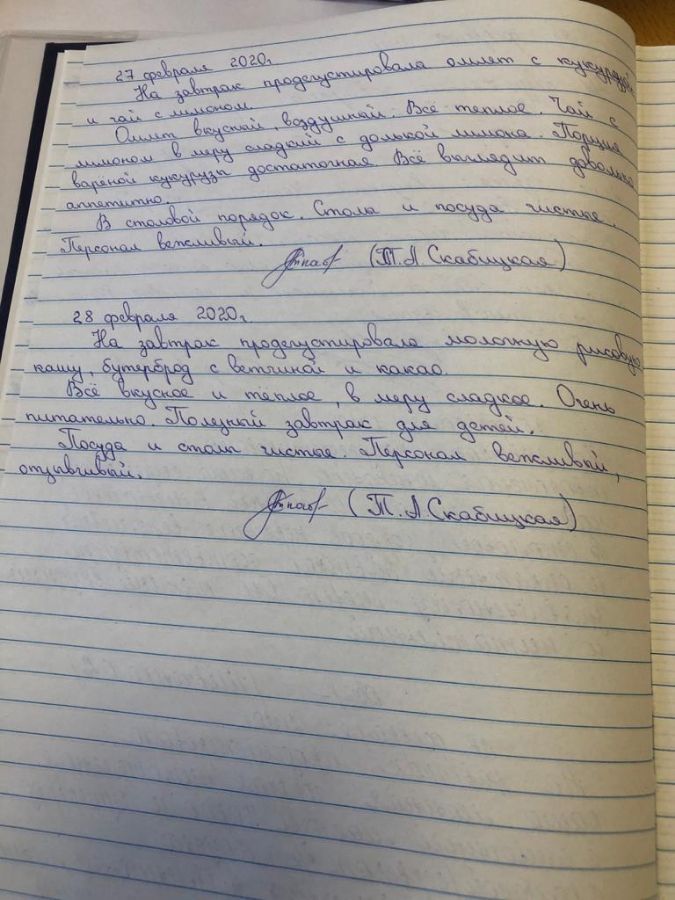 27 февраля 2020г
На завтрак продегустировала омлет с кукурузой
и чай с лимоном.
Омлет вкусный, воздушный. Всё теплое. Чай с
лимоном в меру сладкий с долькой лимона. Порция
варёной кукурузы достаточная Всё выглядит довольно
аппетитно.
В столовой порядок. Столы и посуда чистые.
Персонал вежливый.
(Т.А.Скабицкая)
28 февраля 2020г
На завтрак продегустировала молочную рисовую
кашу, бутерброд с ветчиной и какао.
Всё вкусное и тёплое, в меру сладкое. Очень
питательно. Полезный завтрак для детей.
Посуда и столы чистые. Персонал вежливый,
отзывчивый.
(Т.А.Скабицкая)